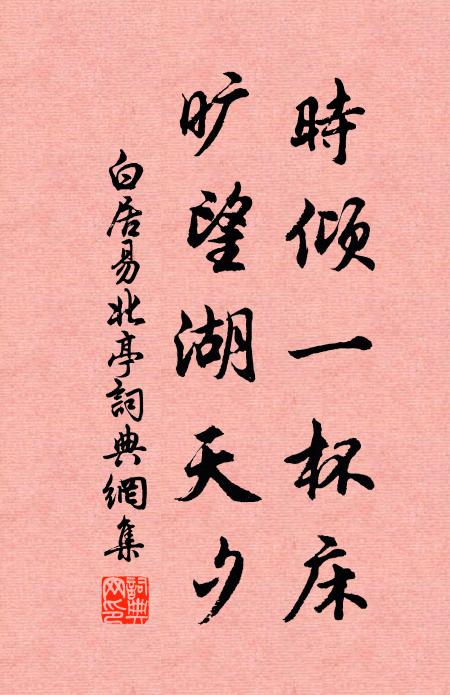 時傾一杯床
旷望湖天夕
白居易北亭詞典網集
詞典
网印